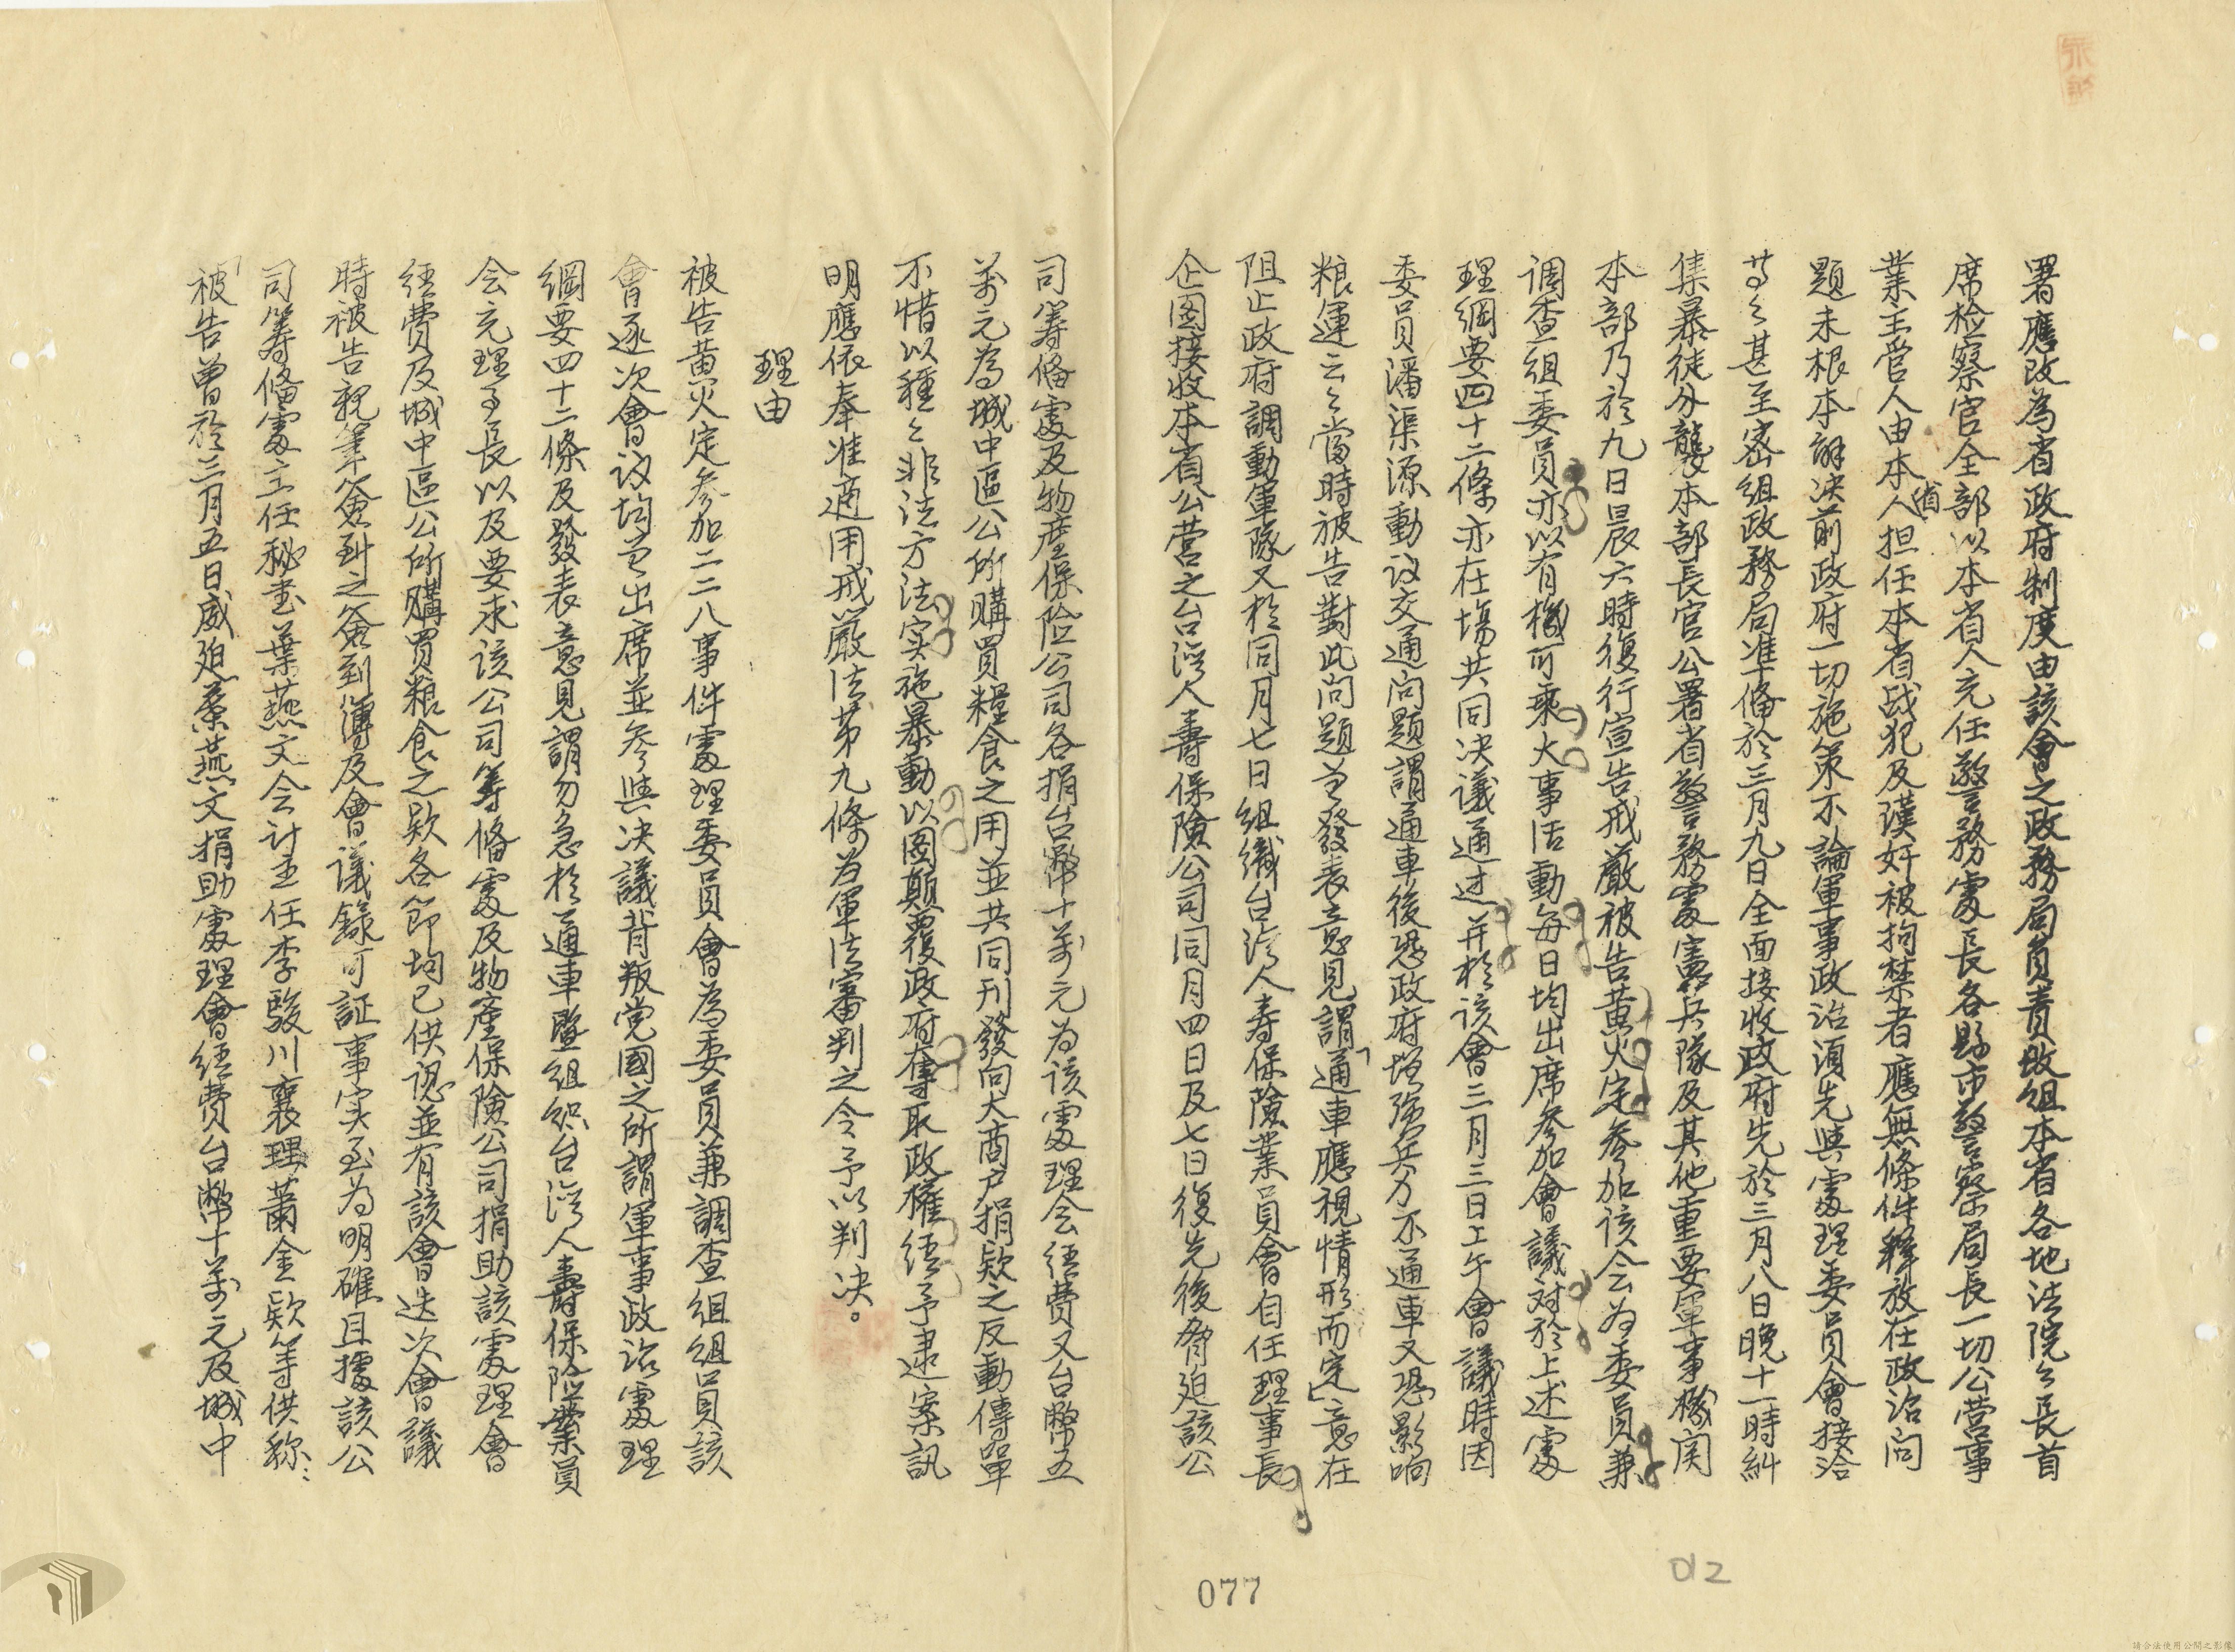 署應改為省政府制度由該會之政務局負責改組本省各地法院々長首
席检察官全部以本省人充任警務處長各縣市警察局長一切公营事
業主管人由本省人担任本省战犯及漢奸被拘禁者應無條件释放在政治问
題未根本解决前政府一切施策不論軍事政治須先與處理委員會接洽
等々甚至密組政務局准備於三月九日全面接收政府先於三月八日晚十一時糾
集暴徒分襲本部長官公署省警務處憲兵隊及其他重要軍事機関
本部乃於九日晨六時復行宣告戒厳被告黄火定参加该会为委員兼
调查組委員亦以有機可乘大事活動每日均出席参加會議对於上述處
理綱要四十二條亦在塲共同决議通过并於该會三月三日上午會議時因
委員潘渠源動议交通问題謂通車後恐政府增强兵力不通車又恐影响
粮運云々當時被告對此问題並發表意見謂「通車應視情形而定」意在
阻止政府調動軍隊又於同月七日組織台湾人寿保險業員會自任理事長
企图接收本省公营之台湾人壽保險公司同月四日及七日復先後脅迫該公
司筹偹處及物產保险公司各捐台幣十萬元为该處理会经費又台幣五
萬元為城中區公所購買糧食之用並共同刊發向大商户捐欵之反動傳單
不惜以種々非法方法实施暴動以图颠覆政府奪取政權经予逮案訊
明應依奉准適用戒嚴法第九條为軍法審判之令予以判决。
理由
被告黄火定參加二二八事件處理委員會為委員兼調查組組員該
會逐次會议均曾出席並參與決議背叛党國之所謂軍事政治處理
綱要四十二條及發表意見謂勿急於通車暨組织台湾人壽保险業員
会充理事長以及要求该公司筹偹處及物產保險公司捐助該處理會
经費及城中區公所購買粮食之欵各節均已供認並有該會迭次會議
時被告親筆簽到之簽到簿及會議錄可証事实至为明確且據該公
司筹偹處主任秘書葉燕文会計主任李駿川襄理蕭金欵等供称：
「被告曾於三月五日威廹葉燕文捐助處理會经費台幣十萬元及城中
077
012
請合法使用公開之影像